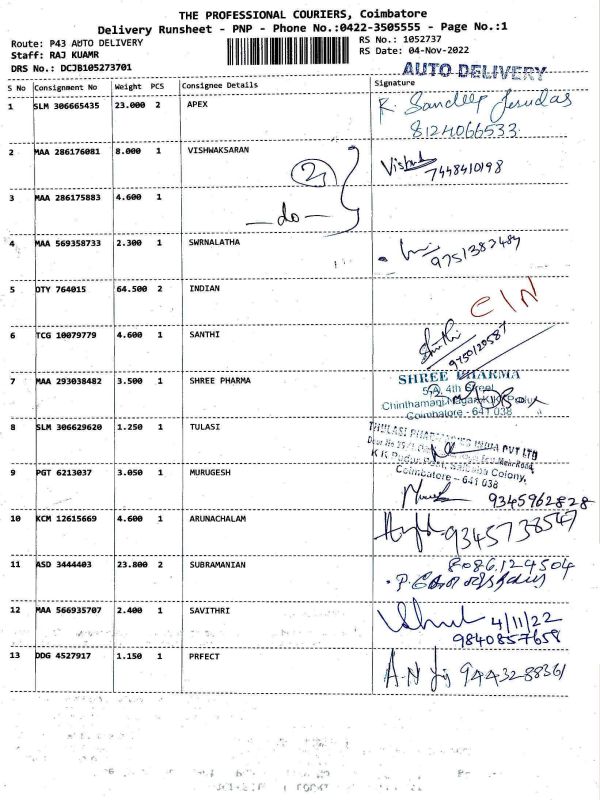 THE PROFESSIONAL COURIERS, Coimbatore
Delivery Runsheet - PNP - Phone No.:0422-3505555 - Page No.:1
Route: P43 AUTO DELIVERY
RS No.: 1052737
Staff: RAJ KUAMR
RS Date: 04-Nov-2022
DRS No.: DCJB105273701
AUTO DELIVERY
S No Consignment No Weight PCS Consignee Details Signature
1 SLM 306665435 23.000 2 APEX
R. Sandeep Jesudas
8124066533
2 MAA 286176081 8.000 1 VISHWAKSARAN
2
7448410198
3 MAA 286175883 4.600 1
—do—
4 MAA 569358733 2.300 1 SWRNALATHA
9751382484
5 DTY 764015 64.500 2 INDIAN
6 TCG 10079779 4.600 1 SANTHI
Santhi
9750120587
7 MAA 293038482 3.500 1 SHREE PHARMA
SHREE PHARMA
4th Street
Chinthamani Nagar, K.K. Pudur
Coimbatore - 641 038
8 SLM 306629620 1.250 1 TULASI
THULASI PHARMACIES INDIA PVT LTD
K K Pudur Post, Saibaba Colony,
Coimbatore - 641 038
9 PGT 6213037 3.050 1 MURUGESH
9345962828
10 KCM 12615669 4.600 1 ARUNACHALAM
9345738547
11 ASD 3444403 23.800 2 SUBRAMANIAN
8086124504
12 MAA 566935707 2.400 1 SAVITHRI
4/11/22
9840857658
13 DDG 4527917 1.150 1 PRFECT
9443288361